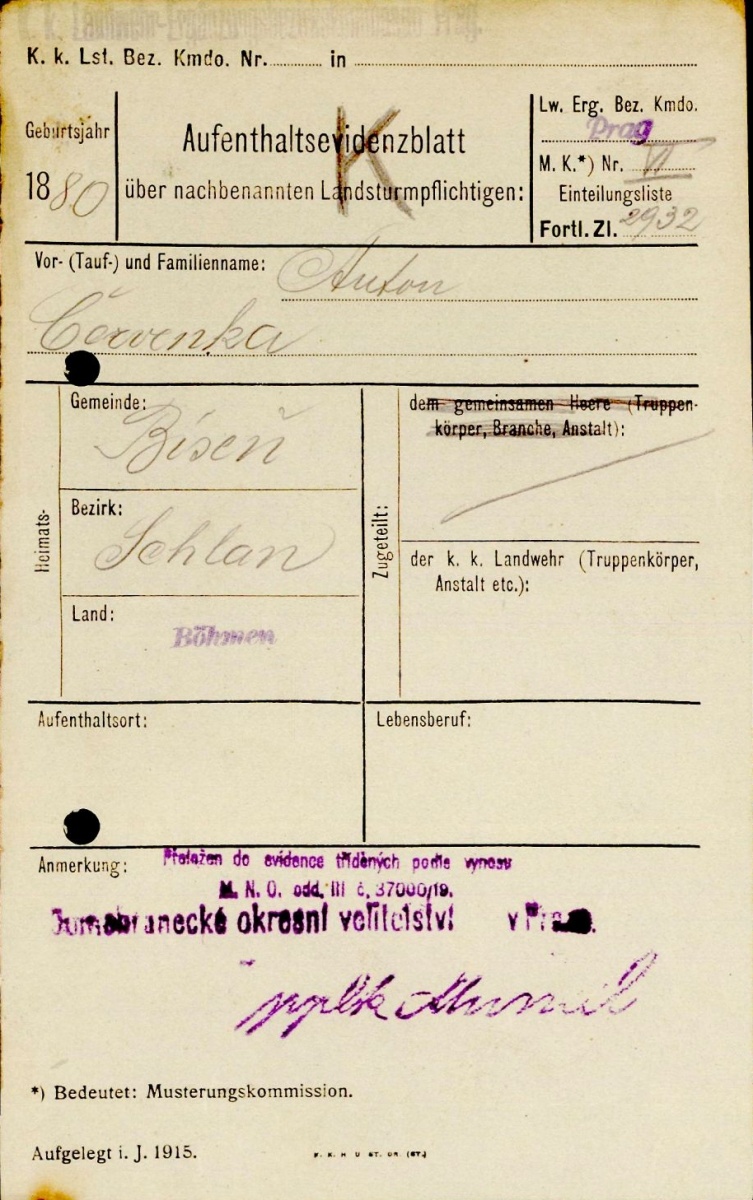 K. k. Landwehr-Ergänzungsbezirkskommando Prag.
K. k. Lst. Bez. Kmdo. Nr. in
Geburtsjahr
1880
Aufenthaltsevidenzblatt
über nachbenannten Landsturmpflichtigen:
K
Lw. Erg. Bez. Kmdo.
Prag
M. K.*) Nr. VI
Einteilungsliste
Fortl. Zl. 2932
Vor- (Tauf-) und Familienname: Anton
Červenka
Heimats-
Gemeinde:
Bíseň
Bezirk:
Schlan
Land:
Böhmen
Zugeteilt:
dem gemeinsamen Heere (Truppen-
körper, Branche, Anstalt):
der k. k. Landwehr (Truppenkörper,
Anstalt etc.):
Aufenthaltsort:
Lebensberuf:
Anmerkung:
Přeložen do evidence tříděných podle vynosu
M. N. O. odd. III č. 37000/19.
Domobranecké okresní velitelství v Praze.
pplk
*) Bedeutet: Musterungskommission.
Aufgelegt i. J. 1915.